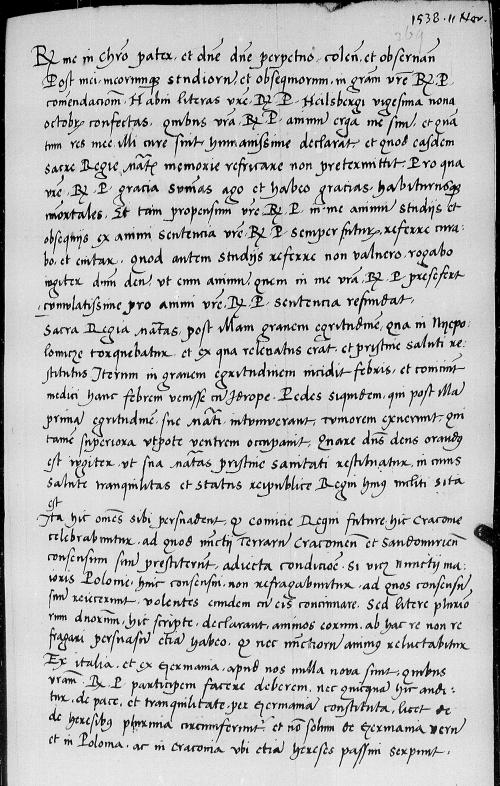 1538. 11 Nov.
369
R me in Chro pater. et dne dne perpetuo. colen. et obseruan
Post mei. meorumq studiorum. et obsequiorum. in gram vre R P.
comendacionem. Habui literas vre. R P. Heilsbergi vigesima nona
octobr confectas. quibus vra. R P. animum erga me suum. et quam
tum res mee illi cure sint humanissime declarat. et quod easdem
sacre Regie Matti memorie refricare non pretermittit. Pro qua
vre. R P. gracia summas ago et habeo gracias. habiturusq
immortales. Et tam propensum vre R P. in me animi studijs et
obsequijs ex animi sentencia vre R P. semper futur. referre cura-
bo. et enitar. quod autem studijs referre non valuero. rogabo
iugiter dnm deum. ut eum animum. quem in me vra. R P. presefert
cumulatissime pro animi vre. R P. sentencia refundat.
Sacra Regia Mattas. post illam grauem egritudinem. qua in Niepo-
lomicze torquebatur. et ex qua releuatus erat. et pristine saluti re-
stitutus Iterum in grauem egritudinem incidit febris. et coniciunt
medici hanc febrem venisse cum Idrope. Pedes siquidem. qui post illa
prima egritudinem. sue Matti. intumuerant. tumorem exuerunt. qui
tamen superiora utpote ventrem occupauit. Quare dns deus orandus
est iugiter. ut sua Mattas pristine sanitati restituatur. in cuius
salute tranquilitas et status reipublice Regni huius incliti sita
est
Ita hic omnes sibi persuadent. q comicia Regni future. hic Cracouie
celebrabuntur. ad quod nunctij Terrarum Cracouien et Sandomirien
consensum suum prestiterunt. adiecta condicione. Si vicz nunctij ma-
ioris Polonie. huic consensui. non refragabuntur. ad quos consensum
suum reiecerunt. volentes eundem cum eis continuare. Sed litere plurio
rum dnorum. hic scripte. declarant. animos eorum. ab hac re non re
fragari. persuasum etiam habeo. q nec nunctiorum animus reluctabitur
Ex italia. et ex Germania. apud nos nulla noua sunt. quibus
vram. R P. participem facere deberem. nec quicquam hic audi-
tur. de pace. et tranquilitate. per Germaniam constituta. licet de
de heresibus plurima circumferuntur. et non solum de Germania verum
et in Polonia. ac in Cracouia ubi etiam hereses passim serpunt.